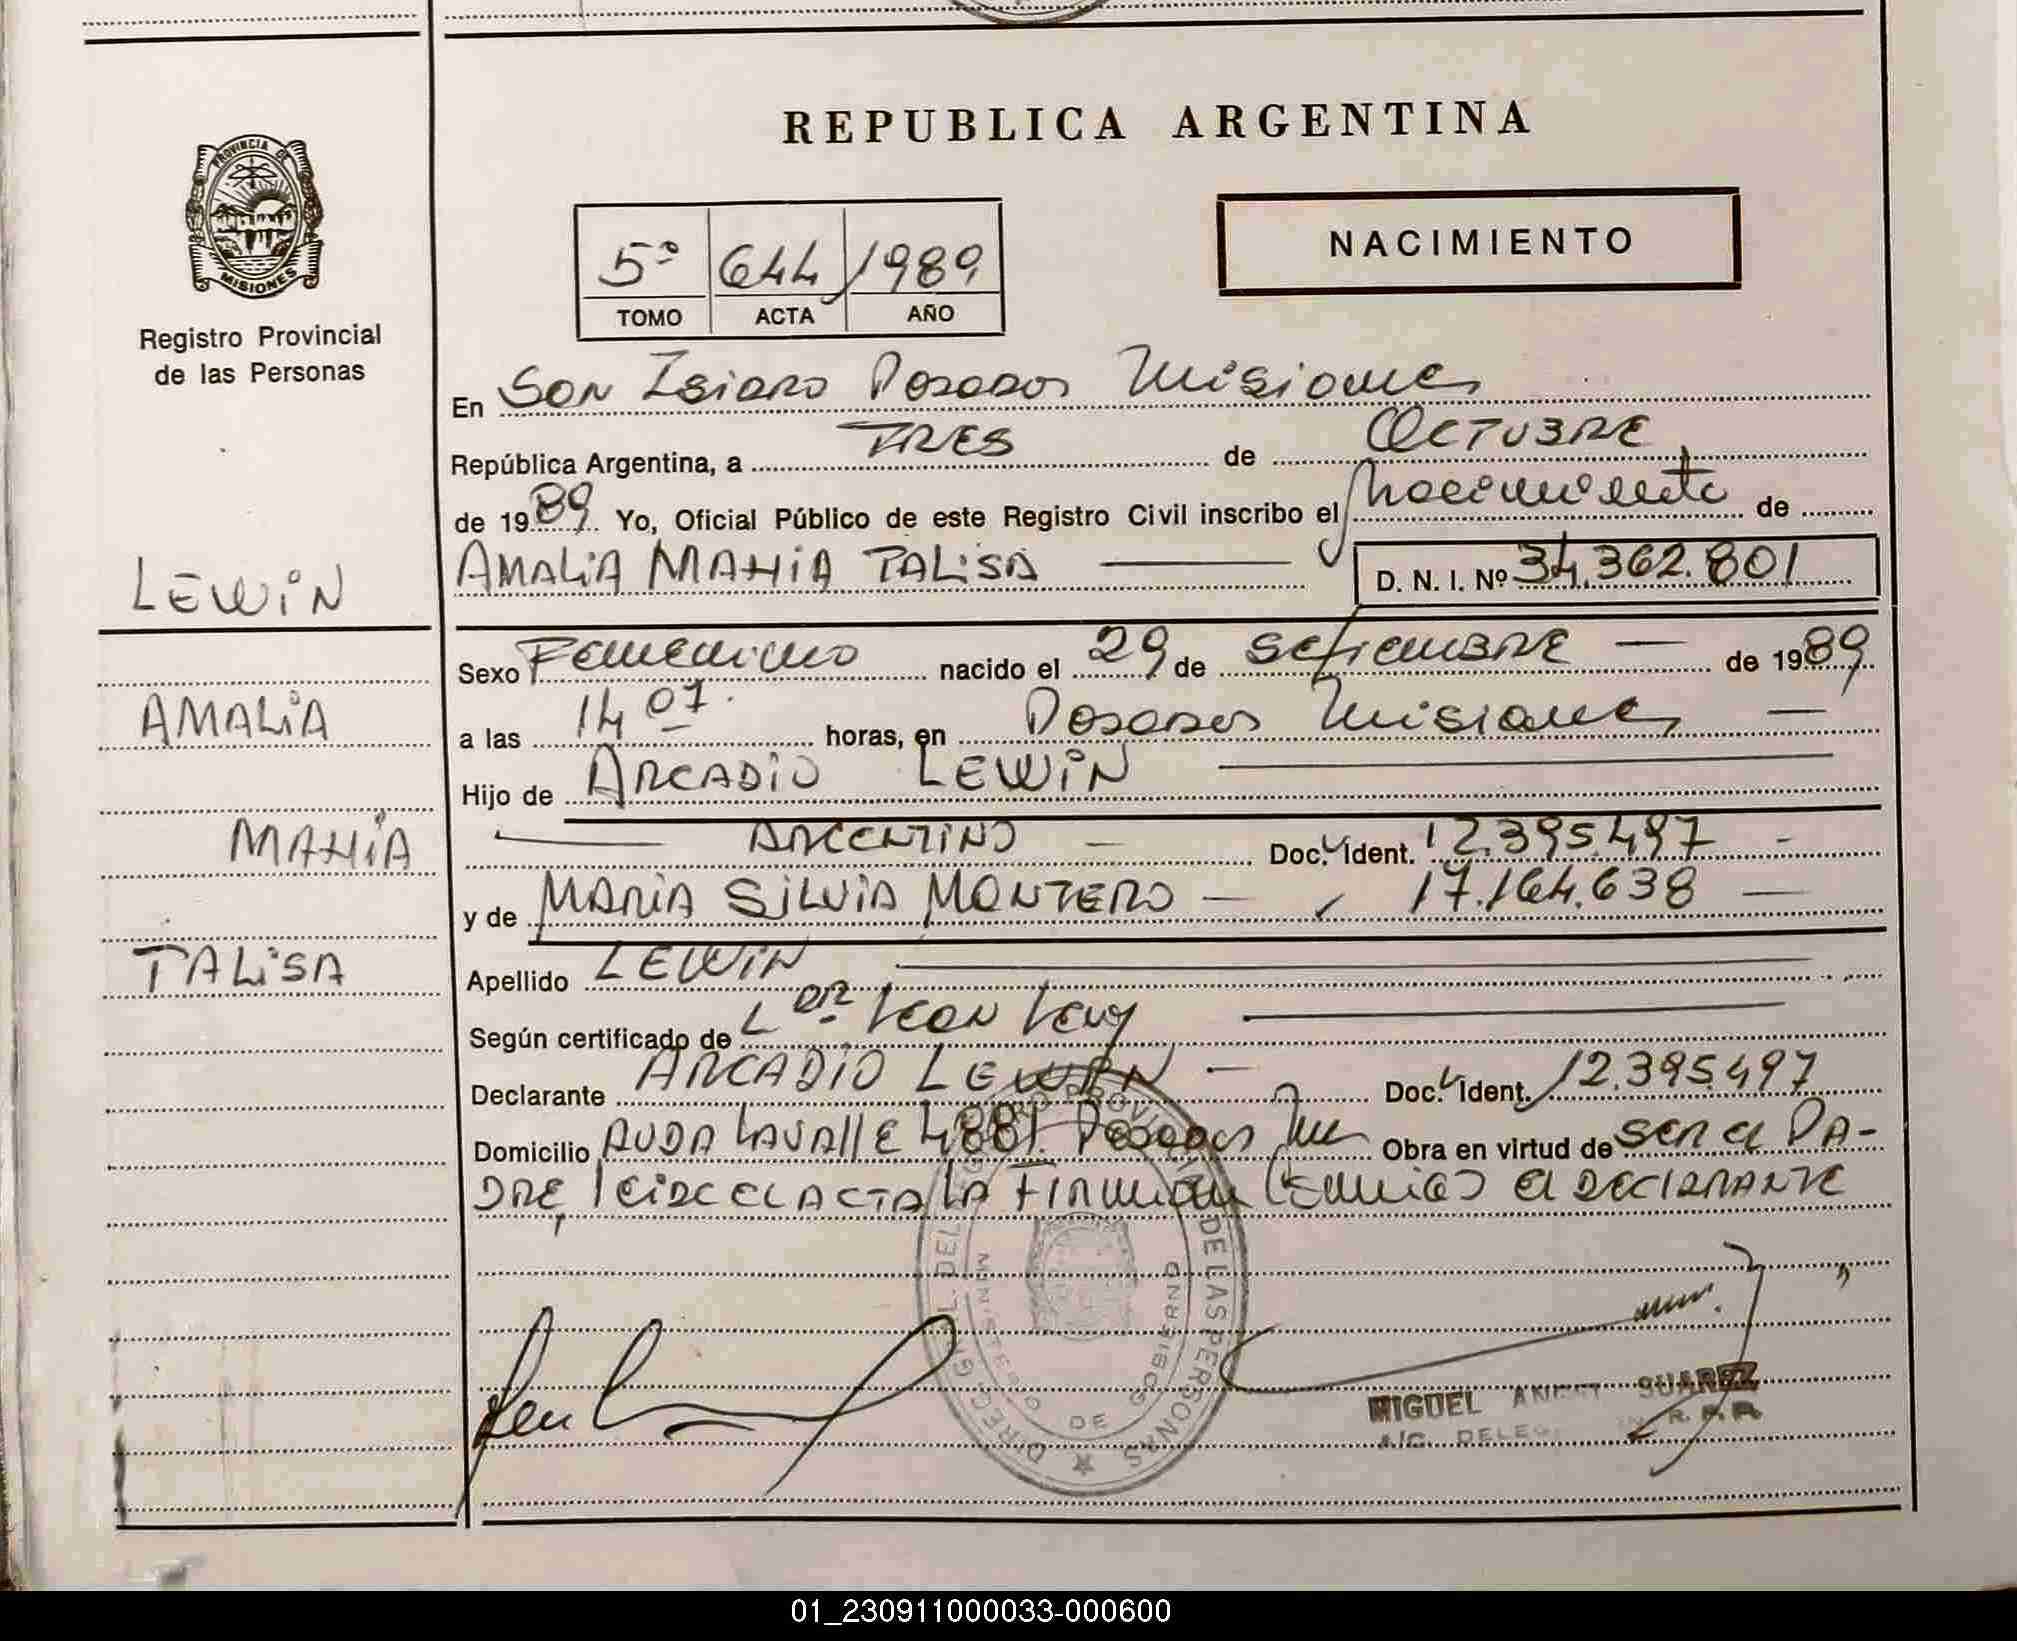 REPUBLICA ARGENTINA
PROVINCIA DE
MISIONES
Registro Provincial
de las Personas
NACIMIENTO
5º 644 1989
TOMO ACTA AÑO
En San Isidro Posadas Misiones
República Argentina, a TRES de OCTUBRE
de 1989 Yo, Oficial Público de este Registro Civil inscribo el Nacimiento de
AMALIA MAHIA TALISA D. N. I. Nº 34.362.801
LEWIN
Sexo Femenino nacido el 29 de Setiembre de 1989
AMALIA
a las 14 07 horas, en Posadas Misiones
Hijo de ARCADIO LEWIN
MAHIA
ARGENTINO Doc. Ident. 12.395.497
y de MARIA SILVIA MONTERO 17.164.638
TALISA
Apellido LEWIN
Según certificado de Leon Levy
Declarante ARCADIO LEWIN Doc. Ident. 12.395.497
Domicilio AVDA LAVALLE 4881 Posadas Obra en virtud de ser el PA-
DRE, leida el ACTA la FIRMAN conmigo el DECLARANTE
DIRECC. GRAL. DEL REGISTRO PROVINCIAL DE LAS PERSONAS
MINISTERIO DE GOBIERNO
MIGUEL ANGEL SUAREZ
A/C. DELEG. R. P. P.
01_230911000033-000600